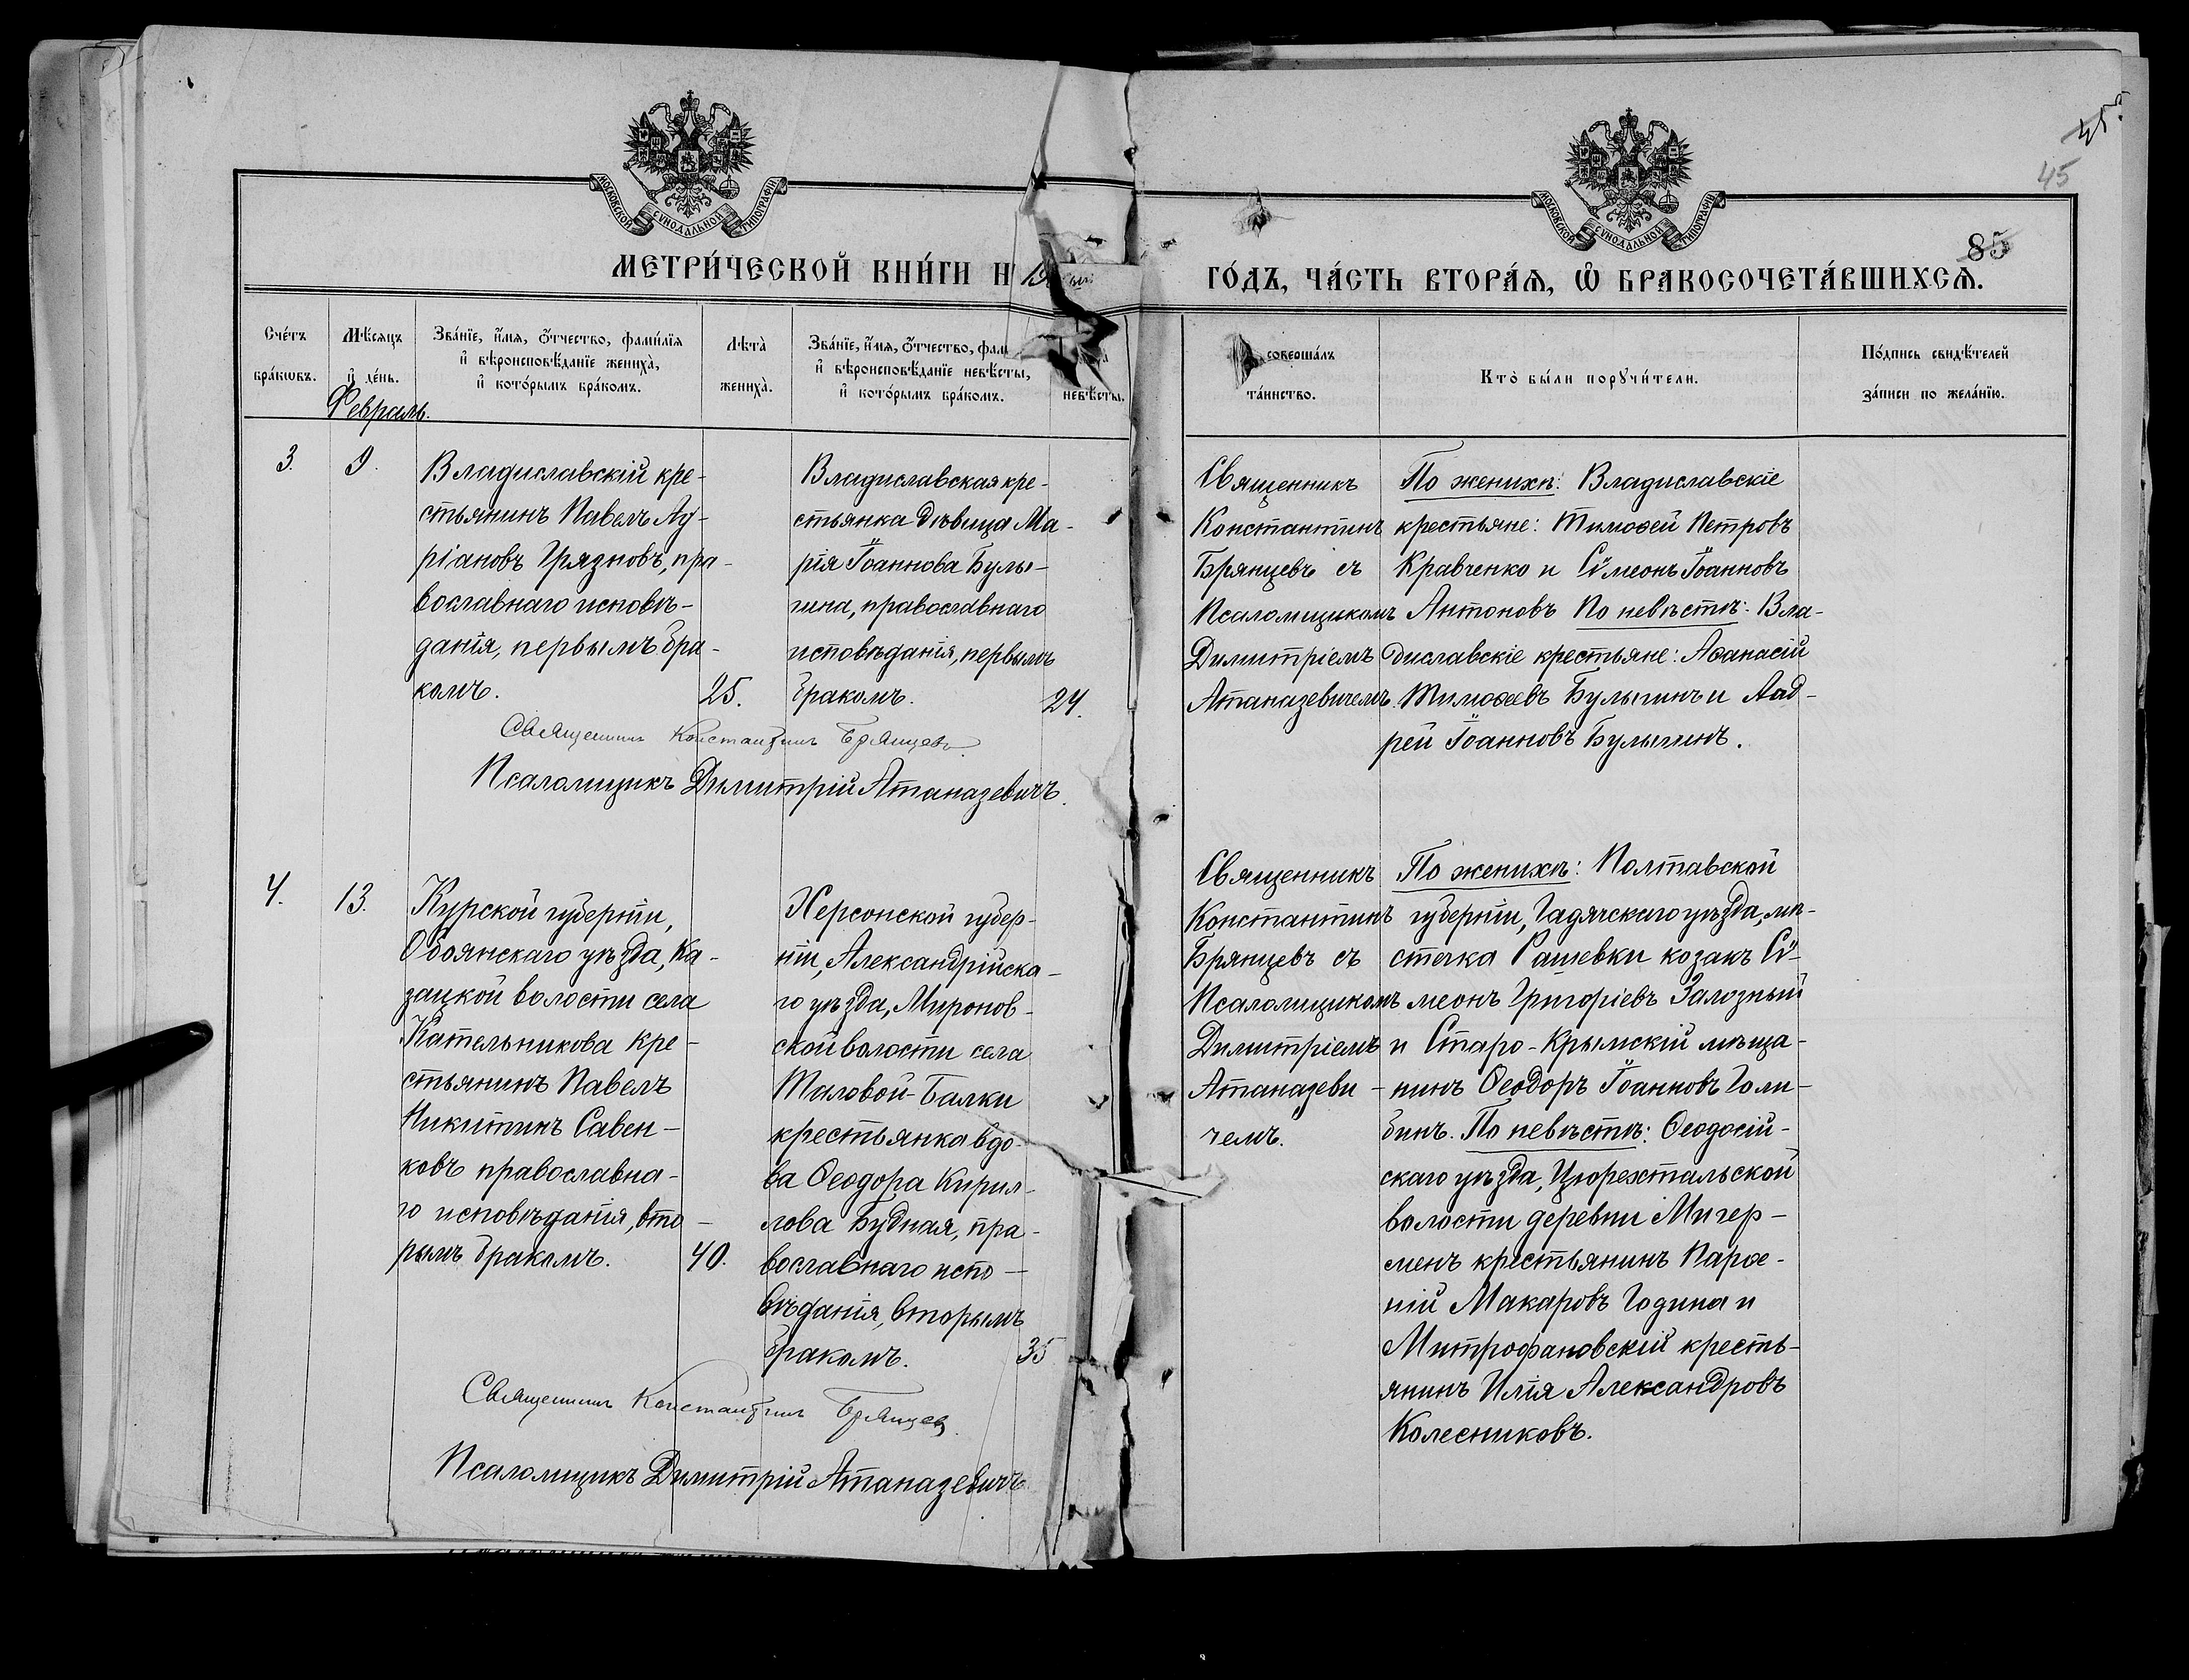 45
85
МОСКОВСКОЙ СѴНОДАЛЬНОЙ ТИПОГРАФІИ
МОСКОВСКОЙ СѴНОДАЛЬНОЙ ТИПОГРАФІИ
МЕТРИ́ЧЕСКОЙ КНИ́ГИ Н
ГО́ДЪ, ЧА́СТЬ ВТОРА́Ѧ, Ѽ БРАКОСОЧЕТА́ВШИХСѦ.
Сче́тъ бра́кѡвъ.
Мѣ́сяцъ и҆ де́нь.
Зва́нїе, и҆́мя, ѻ҆́тчество, фами́лїя и҆ вѣроисповѣ́данїе жениха̀, и҆ кото́рымъ бра́комъ.
Лѣта̀ жениха̀.
Зва́нїе, и҆́мя, ѻ҆́тчество, фам и҆ вѣроисповѣ́данїе невѣ́сты, и҆ кото́рымъ бра́комъ.
невѣ́сты.
соверша́лъ та́инство.
Кто̀ бы́ли порꙋчи́тели.
По́дпись свидѣ́телей за́писи по жела́нїю.
Февраль.
3.
9.
Владиславскій кре-
стьянинъ Павелъ Ад-
ріановъ Грязновъ, пра-
вославнаго исповѣ-
данія, первымъ бра-
комъ.
25.
Владиславская кре-
стьянка дѣвица Ма-
рія Іоаннова Булы-
гина, православнаго
исповѣданія, первымъ
бракомъ.
24.
Священникъ Константинъ Брянцевъ
Псаломщикъ Димитрій Атаназевичъ.
Священникъ
Константинъ
Брянцевъ съ
Псаломщикомъ
Димитріемъ
Атаназевичемъ.
По женихѣ: Владиславскіе
крестьяне: Тимоѳей Петровъ
Кравченко и Сѵмеонъ Іоанновъ
Антоновъ По невѣстѣ: Вла-
диславскіе крестьяне: Аѳанасій
Тимоѳеевъ Булыгинъ и Анд-
рей Іоанновъ Булыгинъ.
4.
13.
Курской губерніи,
Обоянскаго уѣзда, Ка-
зацкой волости села
Кательникова кре-
стьянинъ Павелъ
Никитинъ Савен-
ковъ православна-
го исповѣданія, вто-
рымъ бракомъ.
40.
Херсонской губер-
ніи, Александрійска-
го уѣзда, Миронов-
ской волости села
Шаловой-Балки
крестьянка вдо-
ва Ѳеодора Кирил-
лова Будная, пра-
вославнаго испо-
вѣданія, вторымъ
бракомъ.
35
Священникъ Константинъ Брянцевъ.
Псаломщикъ Димитрій Атаназевичъ
Священникъ
Константинъ
Брянцевъ съ
Псаломщикомъ
Димитріемъ
Атаназеви-
чемъ.
По женихѣ: Полтавской
губерніи, Гадячскаго уѣзда, мѣ-
стечка Рашевки козакъ Сѵ-
меонъ Григоріевъ Залозный
и Старо-Крымскій мѣща-
нинъ Ѳеодоръ Іоанновъ Голи-
бинъ. По невѣстѣ: Ѳеодосій-
скаго уѣзда, Цюрехтальской
волости деревни Мигер-
менъ крестьянинъ Парѳе-
ній Макаровъ Година и
Митрофановскій кресть-
янинъ Илія Александровъ
Колесниковъ.